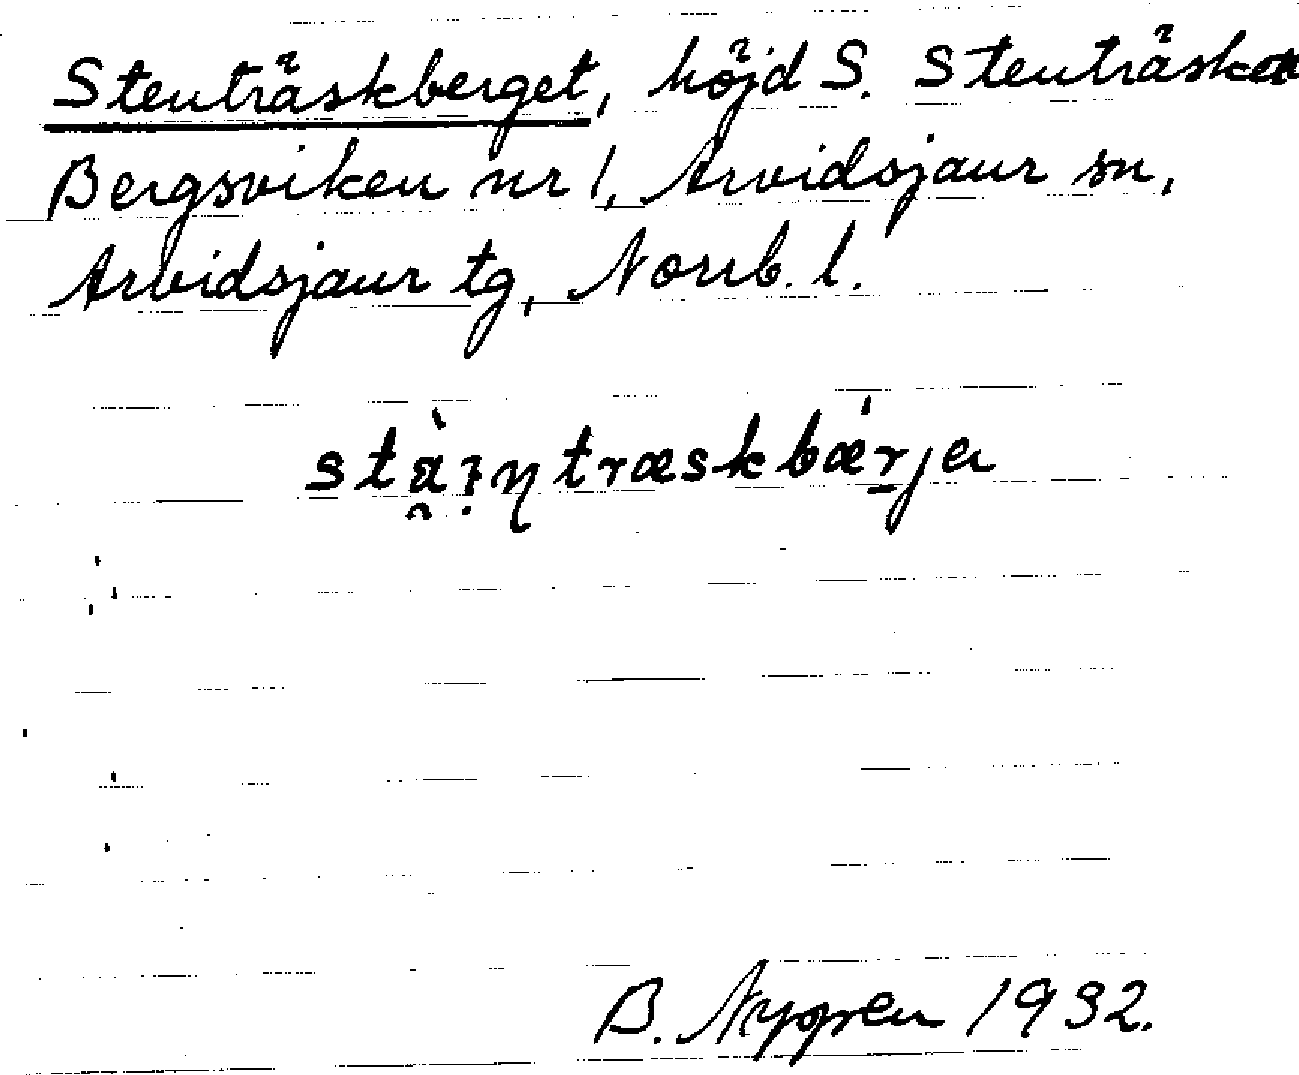 Stenträskberget, höjd S. Stenträsket
Bergsviken nr 1, Arvidsjaur sn,
Arvidsjaur tg, Norrb. l.
B. Nygren 1932.